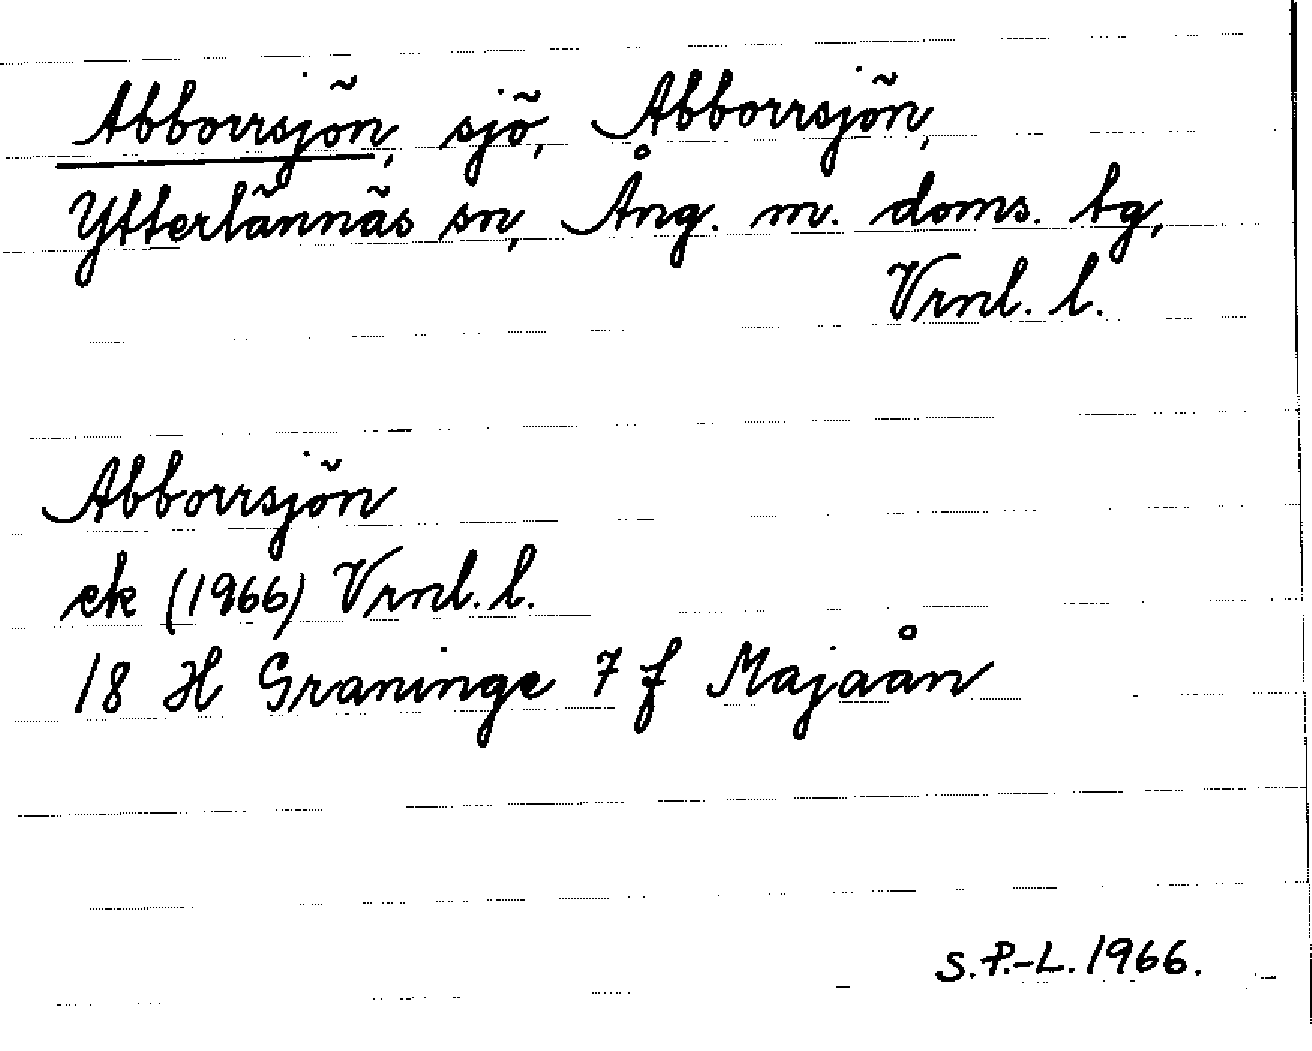 Abborrsjön, sjö, Abborrsjön,
Ytterlännäs sn, Ång. m. doms. tg,
Vrnl. l.
Abborrsjön
ek (1966) Vrnl. l.
18 H Graninge 7 f Majaån
S.P.-L. 1966.